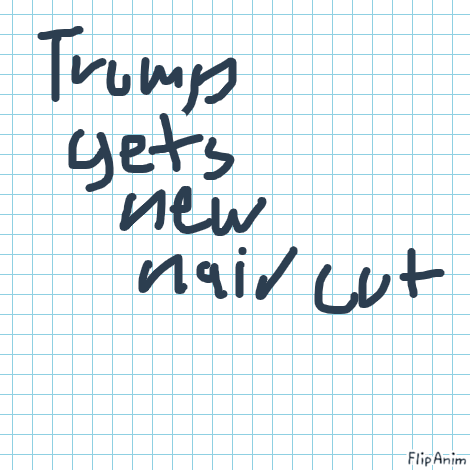 Trump
gets
new
hair cut
FlipAnim